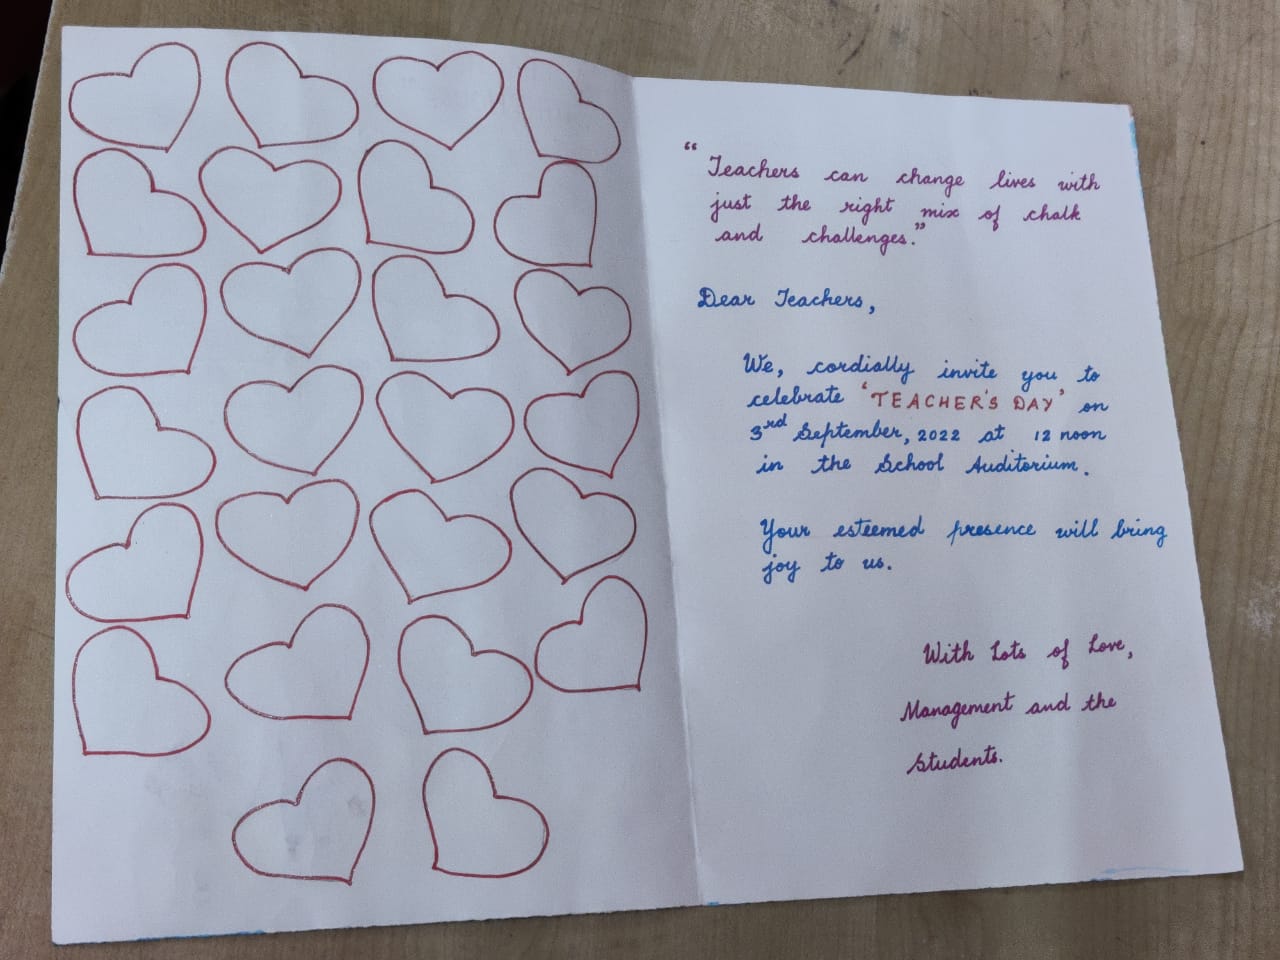 “Teachers can change lives with
just the right mix of chalk
and challenges.”
Dear Teachers,
We, cordially invite you to
celebrate ‘TEACHER'S DAY’ on
3rd September, 2022 at 12 noon
in the School Auditorium.
Your esteemed presence will bring
joy to us.
With Lots of Love,
Management and the
Students.